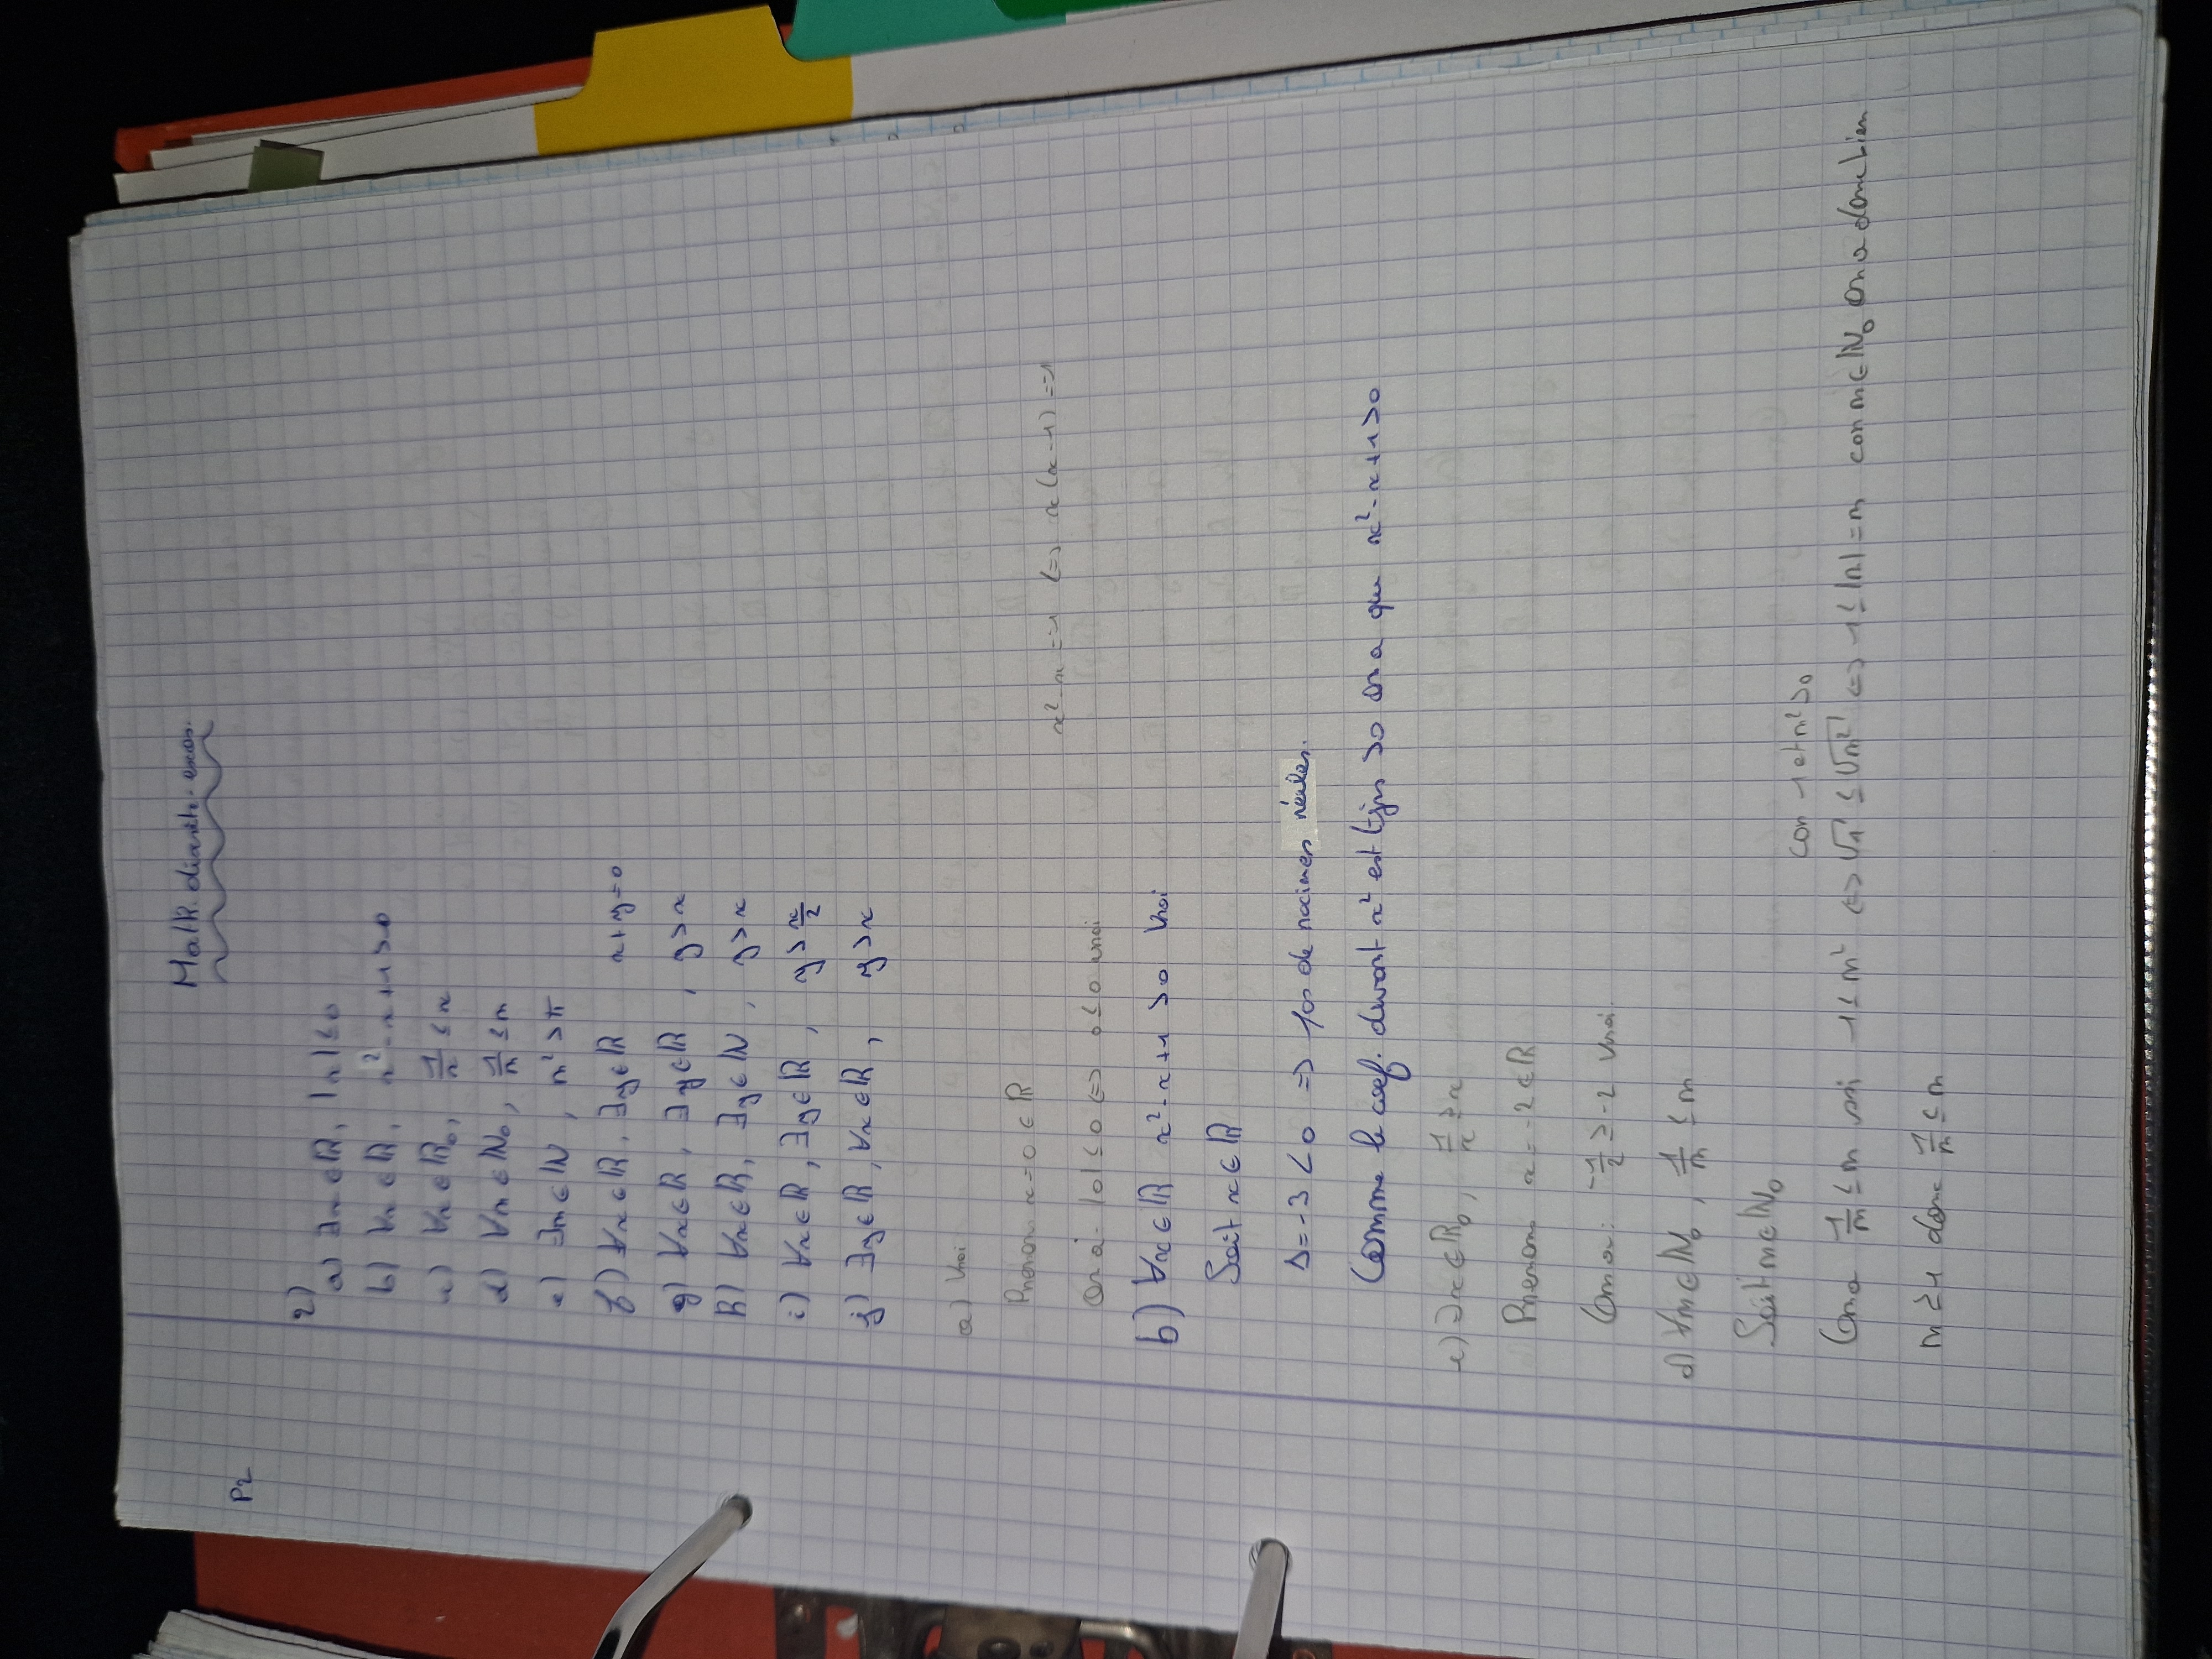 Math discrète exos.
P2
2)
a) ∃x ∈ ℝ, |x| ≤ 0
b) ∀x ∈ ℝ, x² - x + 1 > 0
c) ∀x ∈ ℝ₀, 1/x ≤ x
d) ∀n ∈ ℕ₀, 1/n ≤ n
e) ∃n ∈ ℕ, n² > π
f) ∀x ∈ ℝ, ∃y ∈ ℝ x + y = 0
g) ∀x ∈ ℝ, ∃y ∈ ℝ, y > x
h) ∀x ∈ ℝ, ∃y ∈ ℕ, y > x
i) ∀x ∈ ℝ, ∃y ∈ ℝ, y > x/2
j) ∃y ∈ ℝ, ∀x ∈ ℝ, y > x
a) Vrai
Prenons x = 0 ∈ ℝ
x² - x = -1 <=> x(x - 1) = -1
On a : |0| ≤ 0 <=> 0 ≤ 0 vrai
b) ∀x ∈ ℝ x² - x + 1 > 0 Vrai
Soit x ∈ ℝ
Δ = -3 < 0 => pas de racines réelles.
Comme le coef. devant x² est tjrs > 0 on a que x² - x + 1 > 0
c) ∃x ∈ ℝ₀, 1/x ≥ x
Prenons x = -2 ∈ ℝ
On a : -1/2 ≥ -2 Vrai.
d) ∀n ∈ ℕ₀, 1/n ≤ n
Soit n ∈ ℕ₀
car 1 et n² > 0
On a 1/n ≤ n ssi 1 ≤ n² <=> √1 ≤ √n² <=> 1 ≤ |n| = n car n ∈ ℕ₀ On a donc bien
n ≥ 1 donc 1/n ≤ n